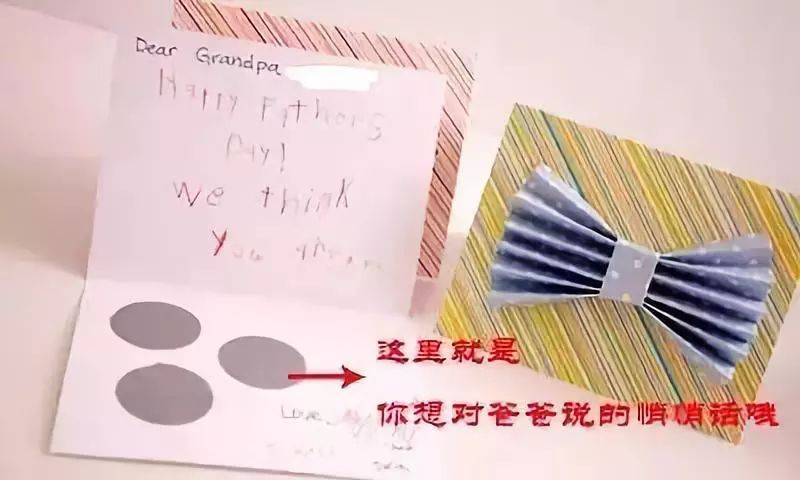 Dear Grandpa
Happy Fathers
Day!
We think
You
Love
这里就是
你想对爸爸说的悄悄话哦